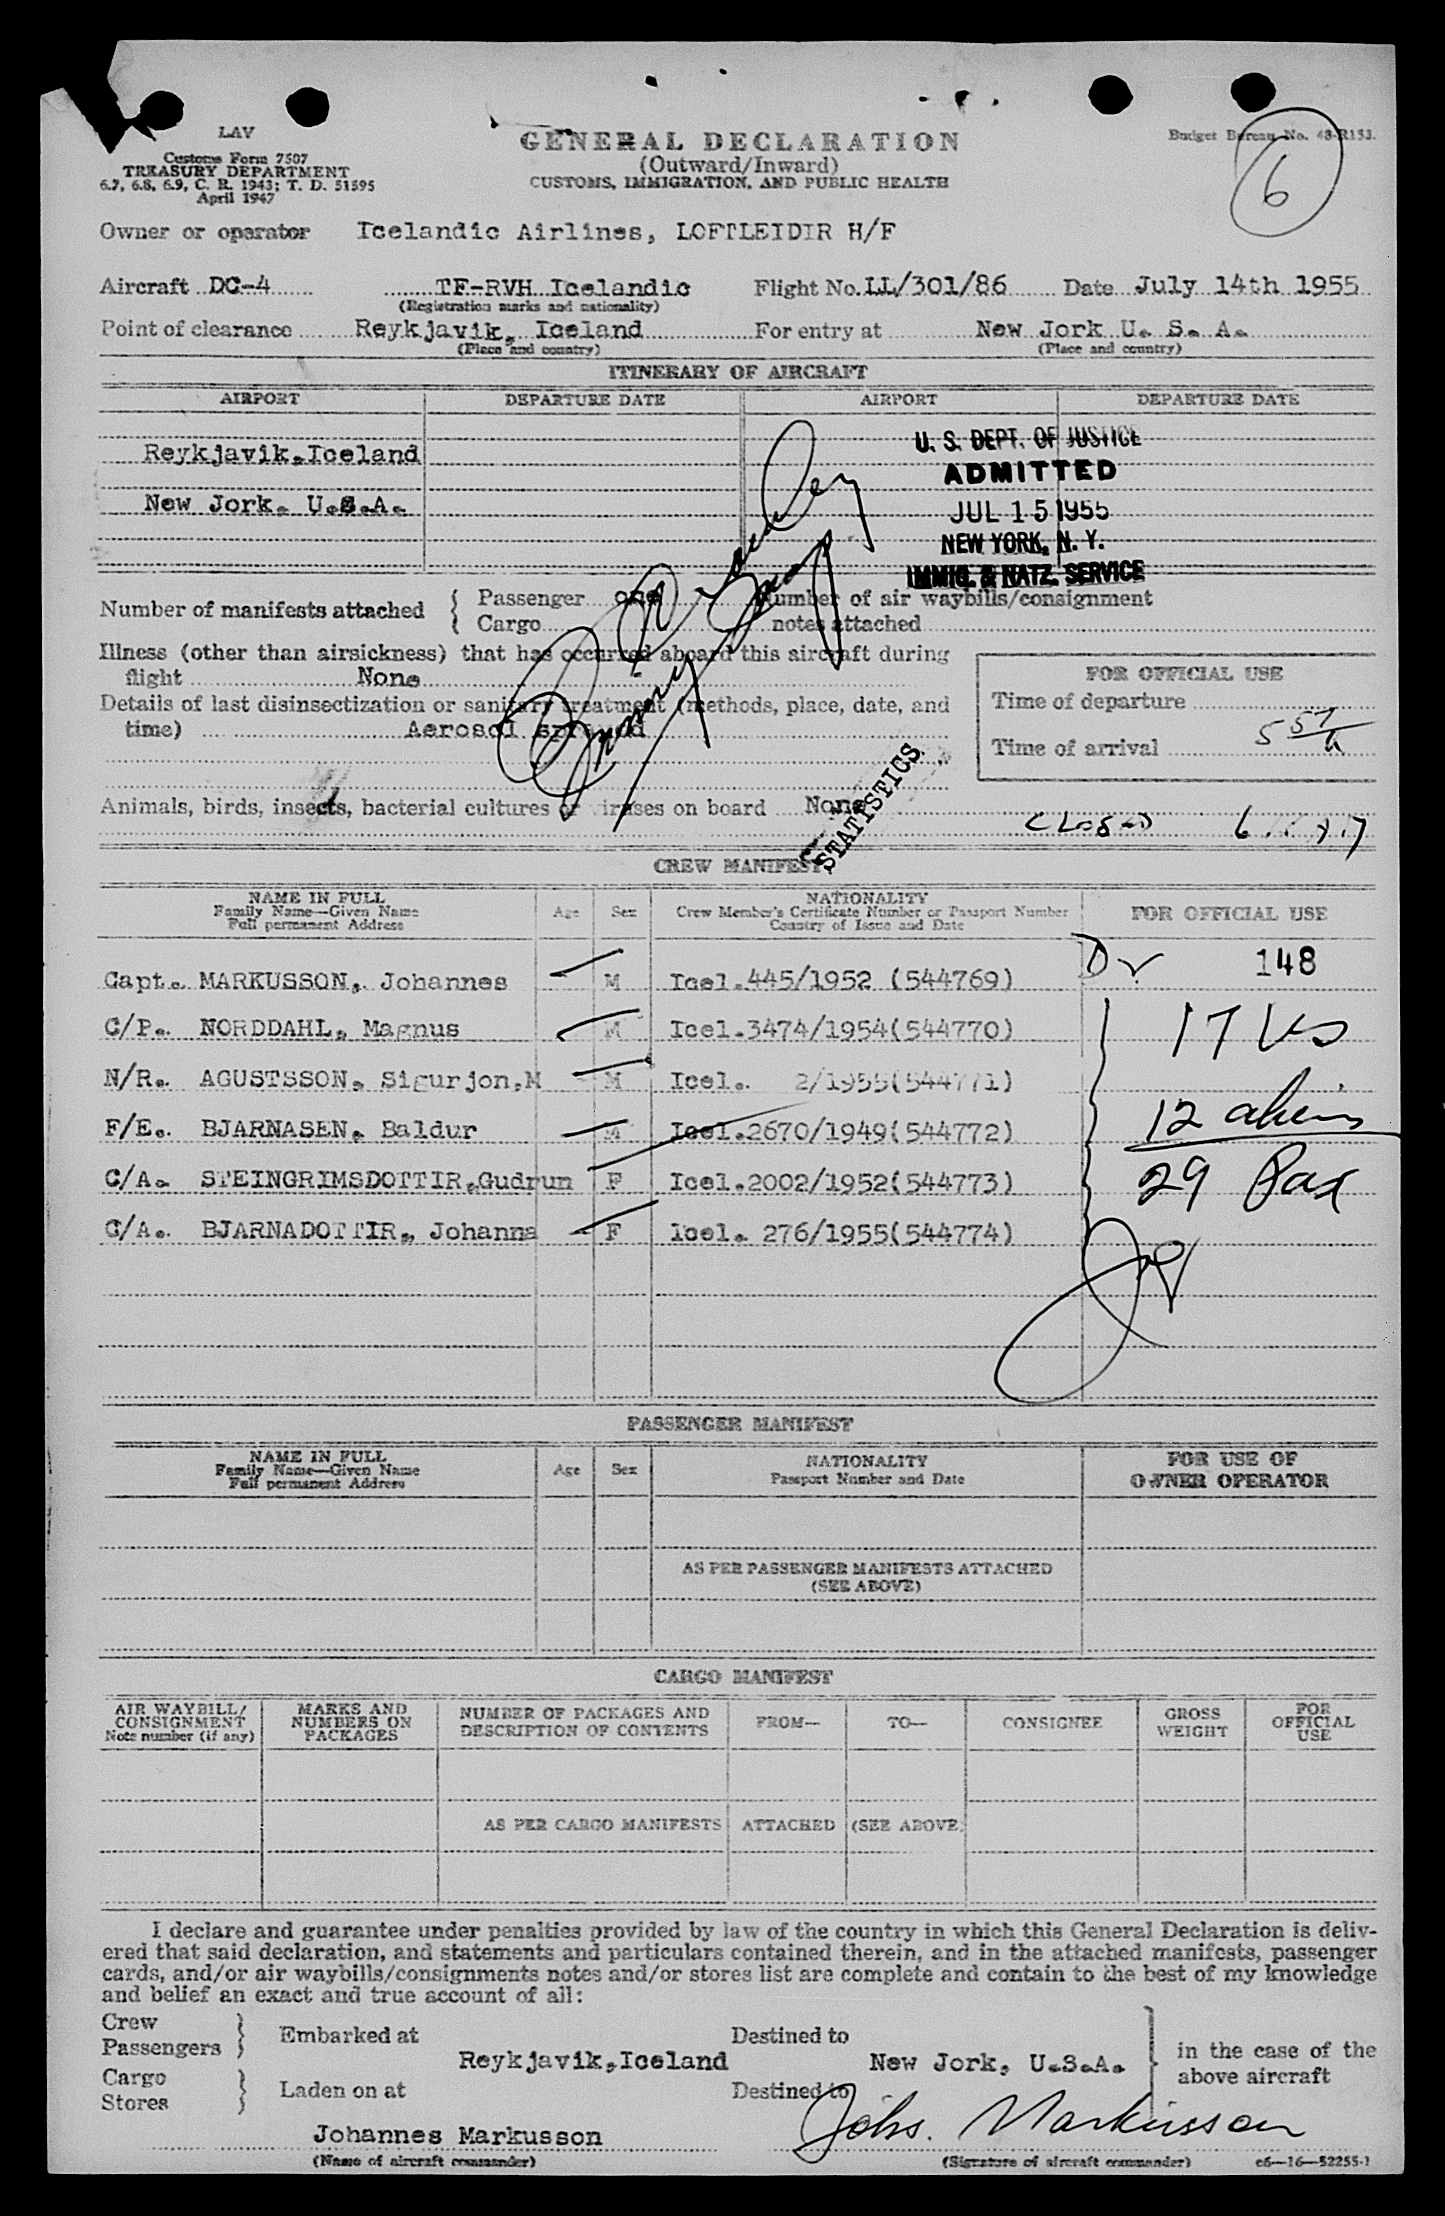 LAV
Customs Form 7507
TREASURY DEPARTMENT
6.7, 6.8, 6.9, C. R. 1943; T. D. 51595
April 1947
GENERAL DECLARATION
(Outward/Inward)
CUSTOMS, IMMIGRATION, AND PUBLIC HEALTH
Budget Bureau No. 48-R153.
6
Owner or operator Icelandic Airlines, LOFTLEIDIR H/F
Aircraft DC-4 TF-RVH Icelandic Flight No. LL/301/86 Date July 14th 1955
(Registration marks and nationality)
Point of clearance Reykjavik, Iceland For entry at New Jork U. S. A.
(Place and country) (Place and country)
ITINERARY OF AIRCRAFT
AIRPORT DEPARTURE DATE AIRPORT DEPARTURE DATE
Reykjavik,Iceland
New Jork. U.S.A.
U. S. DEPT. OF JUSTICE
ADMITTED
JUL 15 1955
NEW YORK, N. Y.
IMMIG. & NATZ. SERVICE
Number of manifests attached { Passenger one Number of air waybills/consignment
Cargo notes attached
Illness (other than airsickness) that has occurred aboard this aircraft during
flight None
Details of last disinsectization or sanitary treatment (methods, place, date, and
time) Aerosol sprayed
FOR OFFICIAL USE
Time of departure
Time of arrival 5 57
Animals, birds, insects, bacterial cultures or viruses on board None
STATISTICS
CLOSED
CREW MANIFEST
NAME IN FULL
Family Name—Given Name
Full permanent Address
Age Sex
NATIONALITY
Crew Member's Certificate Number or Passport Number
Country of Issue and Date
FOR OFFICIAL USE
Capt. MARKUSSON, Johannes M Icel.445/1952 (544769) 148
C/P. NORDDAHL, Magnus M Icel.3474/1954(544770) 17 US
N/R. AGUSTSSON, Sigurjon,M M Icel. 2/1955(544771)
F/E. BJARNASEN, Baldur M Icel.2670/1949(544772) 12 aliens
C/A. STEINGRIMSDOTTIR,Gudrun F Icel.2002/1952(544773) 29 Pax
C/A. BJARNADOTTIR, Johanna F Icel. 276/1955(544774)
PASSENGER MANIFEST
NAME IN FULL
Family Name—Given Name
Full permanent Address
Age Sex
NATIONALITY
Passport Number and Date
FOR USE OF
OWNER OPERATOR
AS PER PASSENGER MANIFESTS ATTACHED
(SEE ABOVE)
CARGO MANIFEST
AIR WAYBILL/
CONSIGNMENT
Note number (if any)
MARKS AND
NUMBERS ON
PACKAGES
NUMBER OF PACKAGES AND
DESCRIPTION OF CONTENTS
FROM—
TO—
CONSIGNEE
GROSS
WEIGHT
FOR
OFFICIAL
USE
AS PER CARGO MANIFESTS ATTACHED (SEE ABOVE)
I declare and guarantee under penalties provided by law of the country in which this General Declaration is deliv-
ered that said declaration, and statements and particulars contained therein, and in the attached manifests, passenger
cards, and/or air waybills/consignments notes and/or stores list are complete and contain to the best of my knowledge
and belief an exact and true account of all:
Crew
Passengers } Embarked at Destined to
Reykjavik,Iceland New Jork, U.S.A. } in the case of the
above aircraft
Cargo
Stores } Laden on at Destined to
Johannes Markusson Johs. Markusson
(Name of aircraft commander) (Signature of aircraft commander) c6—16—52255-1